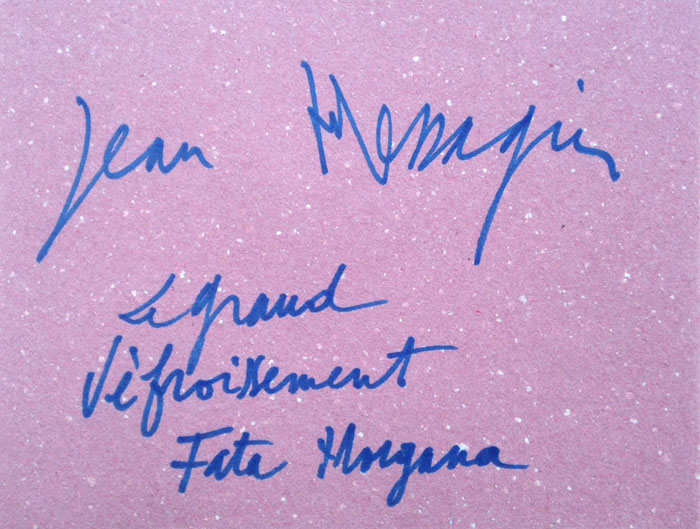 Jean Messagier
Le grand
Défroissement
Fata Morgana